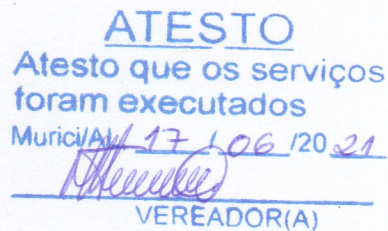 ATESTO
Atesto que os serviços
foram executados
Murici/AL 17 / 06 /20 21
VEREADOR(A)